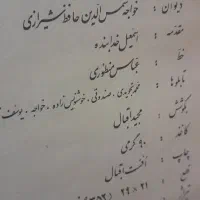 دیوان : خواجه شمس الدین حافظ شیرازی
مقدمه : اسمعیل خدابنده
خط : عباس منظوری
تابلوها : محمد تجویدی . صندوقی . خوشنویس زاده . خواجه . یوسف
بکوشش : مجید اقبال
کاغذ : ۹۰ گرمی
چاپ : افست اقبال
قطع : ۲۱ × ۲۹